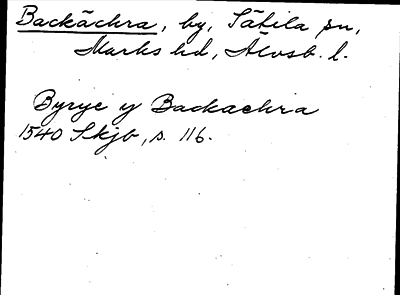 Backächra, by, Sätila sn,
Marks hd, Älvsb. l.
Byrye y Backaehra
1540 Skjb, s. 116.